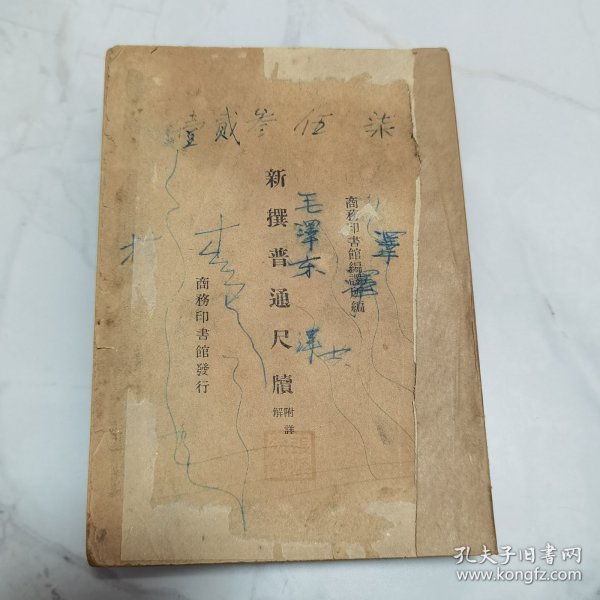 柒 伍 叁 貳 壹
商務印書館編譯所編
澤
毛澤东
澤
新撰普通尺牘
附詳解
商務印書館發行
孔夫子旧书网
www.kongfz.com